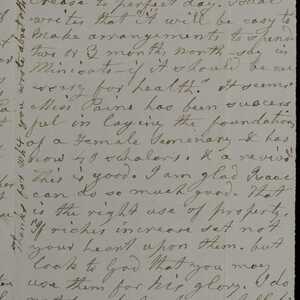 crease to perfect day. Isaac
writes that it will be easy to
make arrangements to spend
two or 3 month North - say in
Minisota - if it should be nec
essary for health". It seems
Miss Paine has been success
ful in laying the foundation
of a Female Semenary & has
now 49 scholars. & a revival
This is good. I am glad Isaac
can do so much good. That
is the right use of property.
If riches increase set not
your heart upon them. but
look to God that you may
use them for his glory. I do
you wrote about the